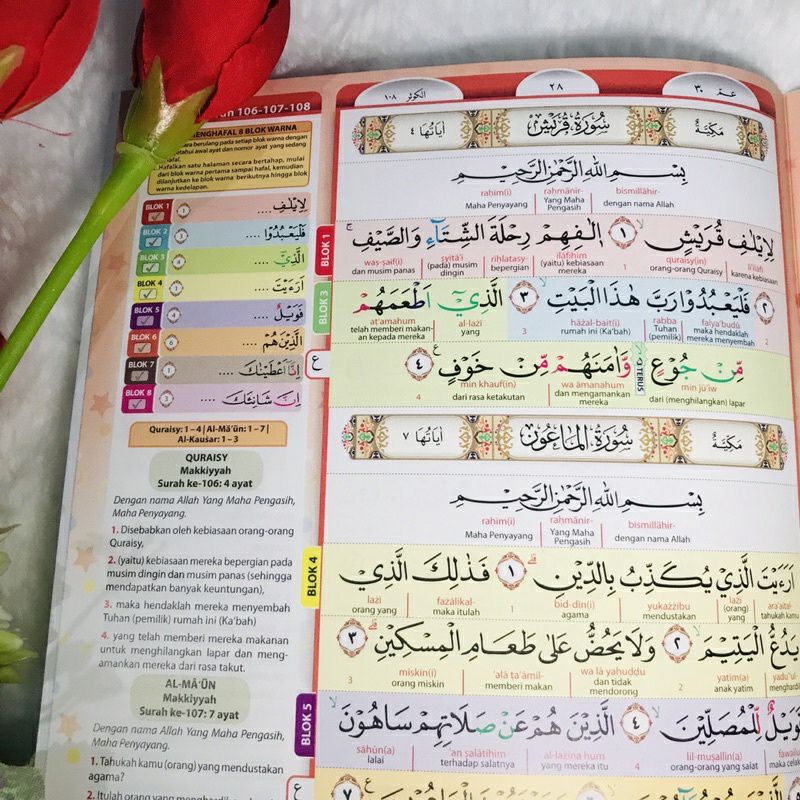 106-107-108
MENGHAFAL 8 BLOK WARNA
berulang pada setiap blok warna dengan
awal ayat dan nomor ayat yang sedang
Hafalkan satu halaman secara bertahap, mulai
dari blok warna pertama sampai hafal, kemudian
dilanjutkan ke blok warna berikutnya hingga blok
warna kedelapan.
BLOK 1 ١ لِاِيْلٰفِ ....
BLOK 2 ٣ فَلْيَعْبُدُوْا ....
BLOK 3 ٤ الَّذِيْٓ ....
BLOK 4 ١ اَرَءَيْتَ ....
BLOK 5 ٤ فَوَيْلٌ ....
BLOK 6 ٦ الَّذِيْنَ هُمْ ....
BLOK 7 ١ اِنَّآ اَعْطَيْنٰكَ ....
BLOK 8 ٣ اِنَّ شَانِئَكَ ....
Quraisy: 1 – 4 | Al-Mā'ūn: 1 – 7 |
Al-Kauṡar: 1 – 3
QURAISY
Makkiyyah
Surah ke-106: 4 ayat
Dengan nama Allah Yang Maha Pengasih,
Maha Penyayang.
1. Disebabkan oleh kebiasaan orang-orang
Quraisy,
2. (yaitu) kebiasaan mereka bepergian pada
musim dingin dan musim panas (sehingga
mendapatkan banyak keuntungan),
3. maka hendaklah mereka menyembah
Tuhan (pemilik) rumah ini (Ka'bah)
4. yang telah memberi mereka makanan
untuk menghilangkan lapar dan meng-
amankan mereka dari rasa takut.
AL-MĀ'ŪN
Makkiyyah
Surah ke-107: 7 ayat
Dengan nama Allah Yang Maha Pengasih,
Maha Penyayang.
1. Tahukah kamu (orang) yang mendustakan
agama?
2. Itulah orang yang
عمّ ٣٠ ٢٨ الكوثر ١٠٨
مَكِّيَّةٌ سُوْرَةُ قُرَيْشٍ اٰيَاتُهَا ٤
بِسْمِ اللّٰهِ الرَّحْمٰنِ الرَّحِيْمِ
raḥīm(i) raḥmānir- bismillāhir-
Maha Penyayang Yang Maha Pengasih dengan nama Allah
BLOK 1
لِاِيْلٰفِ قُرَيْشٍ ١ اٖلٰفِهِمْ رِحْلَةَ الشِّتَاۤءِ وَالصَّيْفِ
waṣ-ṣaif(i) syitā'i riḥlatasy- īlāfihim quraisy(in) li'īlāfi
dan musim panas (pada) musim dingin bepergian (yaitu) kebiasaan mereka 1 orang-orang Quraisy karena kebiasaan
BLOK 3
٢ فَلْيَعْبُدُوْا رَبَّ هٰذَا الْبَيْتِ ٣ الَّذِيْٓ اَطْعَمَهُمْ
aṭ'amahum al-lażī hāżal-bait(i) rabba falya'budū
telah memberi makan-an kepada mereka yang 3 rumah ini (Ka'bah) Tuhan (pemilik) maka hendaklah mereka menyembah 2
مِّنْ جُوْعٍ وَّاٰمَنَهُمْ مِّنْ خَوْفٍ ٤
TERUS
min khauf(in) wa āmanahum min jū'iw
4 dari rasa ketakutan dan mengamankan mereka dari (menghilangkan) lapar
ع
مَكِّيَّةٌ سُوْرَةُ الْمَاعُوْنِ اٰيَاتُهَا ٧
بِسْمِ اللّٰهِ الرَّحْمٰنِ الرَّحِيْمِ
raḥīm(i) raḥmānir- bismillāhir-
Maha Penyayang Yang Maha Pengasih dengan nama Allah
BLOK 4
اَرَءَيْتَ الَّذِيْ يُكَذِّبُ بِالدِّيْنِ ١ فَذٰلِكَ الَّذِيْ
lażī fażālikal- bid-dīn(i) yukażżibu lażī ara'aital-
orang yang maka itulah 1 agama mendustakan (orang) yang tahukah kamu
يَدُعُّ الْيَتِيْمَ ٢ وَلَا يَحُضُّ عَلٰى طَعَامِ الْمِسْكِيْنِ ٣
miskīn(i) 'alā ṭa'āmil- wa lā yaḥuḍḍu yatīm(a) yadu''ul-
3 orang miskin memberi makan dan tidak mendorong 2 anak yatim menghardik
BLOK 5
فَوَيْلٌ لِّلْمُصَلِّيْنَ ٤ الَّذِيْنَ هُمْ عَنْ صَلَاتِهِمْ سَاهُوْنَ
sāhūn(a) 'an ṣalātihim al-lażīna hum lil-muṣallīn(a)
lalai terhadap salatnya yang mereka itu 4 orang-orang yang salat maka celaka
ع